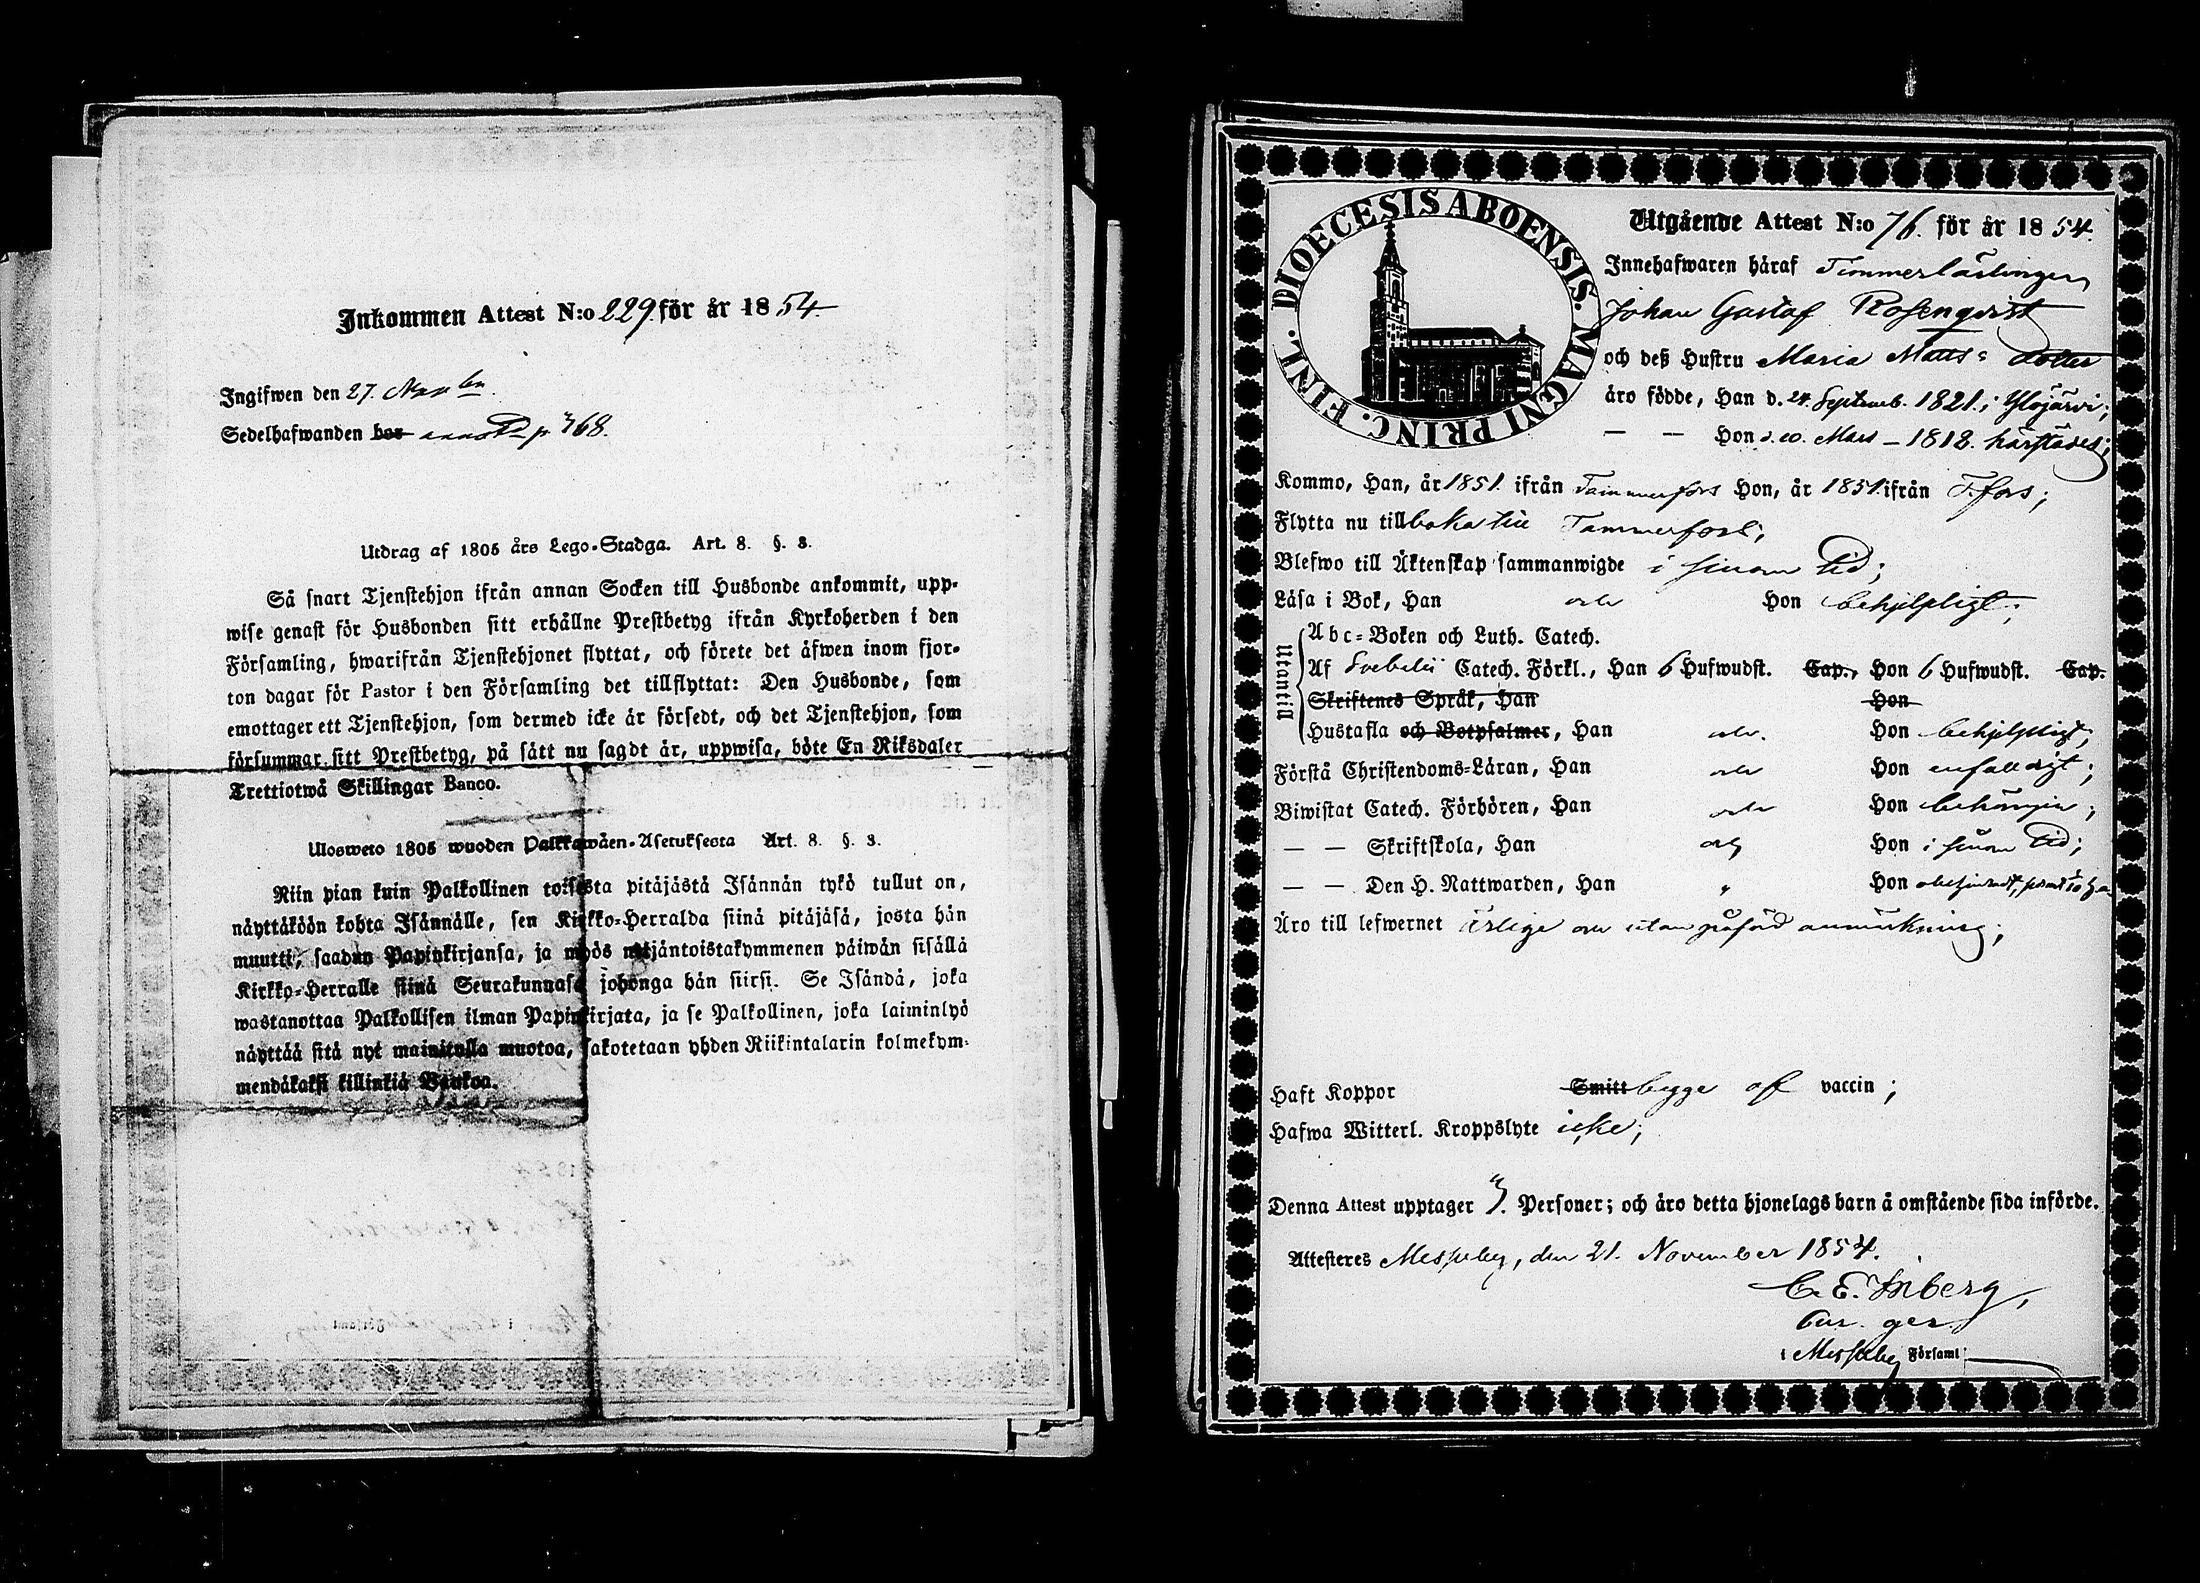 Inkommen Attest N:o 229. för år 1854.
Ingifwen den 27. Novbr.
Sedelhafwanden bor p 768.
Utdrag af 1805 års Lego-Stadga. Art. 8. §. 3.
Så snart Tjenstehjon ifrån annan Socken till Husbonde ankommit, upp-
wise genast för Husbonden sitt erhållne Prestbetyg ifrån Kyrkoherden i den
Församling, hwarifrån Tjenstehjonet flyttat, och förete det äfwen inom fjor-
ton dagar för Pastor i den Församling det tillflyttat: Den Husbonde, som
emottager ett Tjenstehjon, som dermed icke är försedt, och det Tjenstehjon, som
försummar sitt Prestbetyg, på sätt nu sagdt är, uppwisa, böte En Riksdaler
Trettiotwå Skillingar Banco.
Ulosweto 1805 wuoden Palkkawäen-Asetuksesta Art. 8. §. 3.
Niin pian kuin Palkollinen toisesta pitäjästä Isännän tykö tullut on,
näyttäköön kohta Isännälle, sen Kirkko-Herralda siinä pitäjäsä, josta hän
muutti, saadun Papinkirjansa, ja myös neljäntoistakymmenen päiwän sisällä
Kirkko-Herralle siinä Seurakunnasa johonga hän siirsi. Se Isändä, joka
wastanottaa Palkollisen ilman Papinkirjata, ja se Palkollinen, joka laiminlyö
näyttää sitä nyt mainitulla muotoa, sakotetaan yhden Riikintalarin kolmekym-
mendäkaksi killinkiä Bankoa.
DIOECESIS ABOENSIS. MAGNI PRINC. FINL.
Utgående Attest N:o 76. för år 1854.
Innehafwaren häraf Timmerlärlingen
Johan Gustaf Rosenqvist
och deß Hustru Maria Matts dotter
äro födde, Han d. 24 Septemb. 1821. i Ylöjärvi;
— — Hon d. 10. Mars – 1812. härstädes;
Kommo, Han, år 1851. ifrån Tammerfors Hon, år 1851. ifrån T.fors;
Flytta nu tillbaka till Tammerfors;
Blefwo till Äktenskap sammanwigde i sinom tid;
Läsa i Bok, Han och Hon behjelpligt;
Utantill
Abc-Boken och Luth. Catech.
Af Svebelii Catech. Förkl., Han 6 Hufwudst. Cap., Hon 6 Hufwudst. Cap.
Skriftenes Språk, Han Hon
Hustafla och Botpsalmer, Han och Hon behjelpligt;
Förstå Christendoms-Läran, Han och Hon enfaldigt;
Biwistat Catech. Förhören, Han och Hon behörigen;
— — Skriftskola, Han och Hon i sinom tid;
— — Den H. Nattwarden, Han " Hon
Äro till lefwernet ärlige och utan påförd anmärkning;
Haft Koppor Smitt begge af vaccin;
Hafwa Witterl. Kroppslyte icke;
Denna Attest upptager 3. Personer; och äro detta hjonelags barn å omstående sida införde.
Attesteres Messuby, den 21. November 1854.
C. E. Inberg,
Cur. ger.
i Messuby Församl.